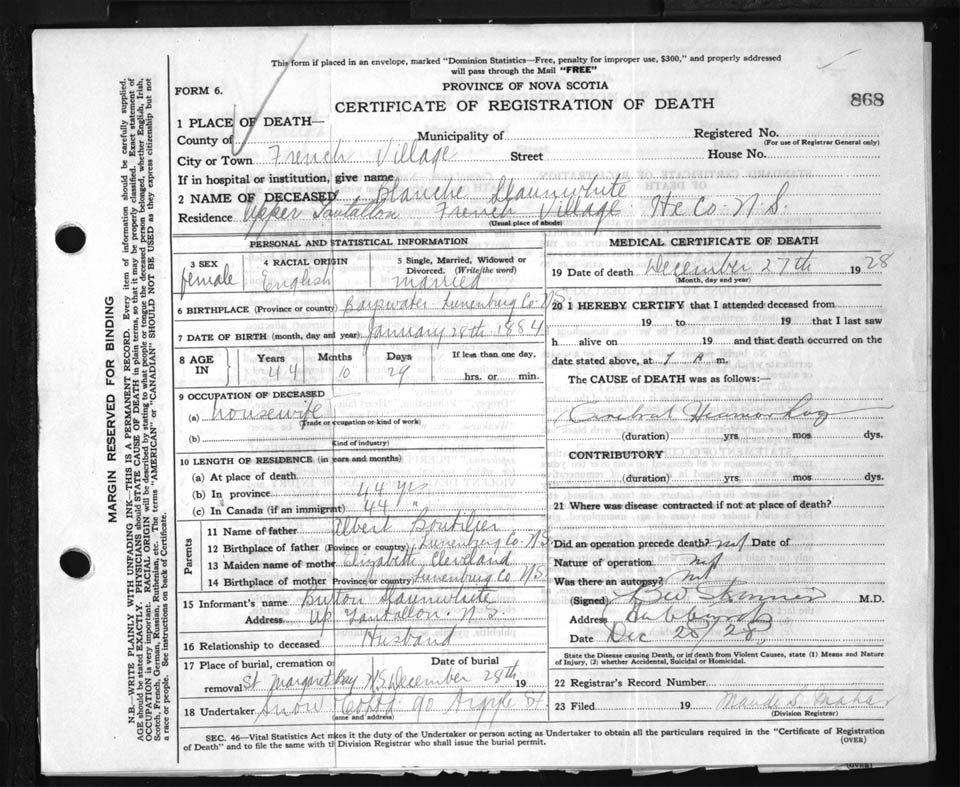 This form if placed in an envelope, marked "Dominion Statistics—Free, penalty for improper use, $300," and properly addressed
will pass through the Mail "FREE"
FORM 6.
PROVINCE OF NOVA SCOTIA
CERTIFICATE OF REGISTRATION OF DEATH
868
1 PLACE OF DEATH—
County of Municipality of Registered No.
(For use of Registrar General only)
City or Town French Village Street House No.
If in hospital or institution, give name
2 NAME OF DECEASED Blanche Shaunwhite
Residence Upper Tantallon French Village Hx Co. N.S.
(Usual place of abode)
PERSONAL AND STATISTICAL INFORMATION
3 SEX 4 RACIAL ORIGIN 5 Single, Married, Widowed or
Divorced. (Write the word)
female English married
6 BIRTHPLACE (Province or country) Bayswater Lunenburg Co. N.S.
7 DATE OF BIRTH (month, day and year) January 28th 1884
8 AGE IN Years Months Days If less than one day,
44 10 29 hrs. or min.
9 OCCUPATION OF DECEASED
(a) housewife
(Trade or occupation or kind of work)
(b)
Kind of industry)
10 LENGTH OF RESIDENCE (in years and months)
(a) At place of death
(b) In province 44 yrs
(c) In Canada (if an immigrant) 44 "
Parents
11 Name of father Albert Boutilier
12 Birthplace of father (Povince or country) Lunenburg Co. N.S.
13 Maiden name of mother Elizabeth Cleveland
14 Birthplace of mother Province or country) Lunenburg Co. N.S.
15 Informant's name Burton Shaunwhite
Address Up Tantallon N.S.
16 Relationship to deceased Husband
17 Place of burial, cremation or Date of burial
removal St Margaret Bay N.S. December 28th 19
18 Undertaker Snow 90 Argyle St
(name and address)
MEDICAL CERTIFICATE OF DEATH
19 Date of death December 27th 1928
(Month, day and year)
20 I HEREBY CERTIFY that I attended deceased from
19 to 19 that I last saw
h alive on 19 and that death occurred on the
date stated above, at 7 A m.
The CAUSE of DEATH was as follows:
Cerebral Hemorrhage
(duration) yrs mos dys.
CONTRIBUTORY
(duration) yrs mos dys.
21 Where was disease contracted if not at place of death?
Did an operation precede death? not Date of
Nature of operation not
Was there an autopsy? not
(Signed) M.D.
Address
Date Dec 28/28
State the Disease causing Death, or in death from Violent Causes, state (1) Means and Nature
of Injury, (2) whether Accidental, Suicidal or Homicidal.
22 Registrar's Record Number
23 Filed 19 Maude
(Division Registrar)
SEC. 46—Vital Statistics Act makes it the duty of the Undertaker or person acting as Undertaker to obtain all the particulars required in the "Certificate of Registration
of Death" and to file the same with the Division Registrar who shall issue the burial permit.
(OVER)
(OVER)
MARGIN RESERVED FOR BINDING
N.B.—WRITE PLAINLY WITH UNFADING INK—THIS IS A PERMANENT RECORD. Every item of information should be carefully supplied.
AGE should be stated EXACTLY. PHYSICIANS should STATE CAUSE OF DEATH in plain terms, so that it may be properly classified. Exact statement of
OCCUPATION is very important. RACIAL ORIGIN will be described by stating to what people or tongue the deceased person belonged, whether English, Irish,
Scotch, French, German, Russian, Ruthenian, etc. The terms "AMERICAN" or "CANADIAN" SHOULD NOT BE USED as they express citizenship but not
a race or people. See instructions on back of Certificate.